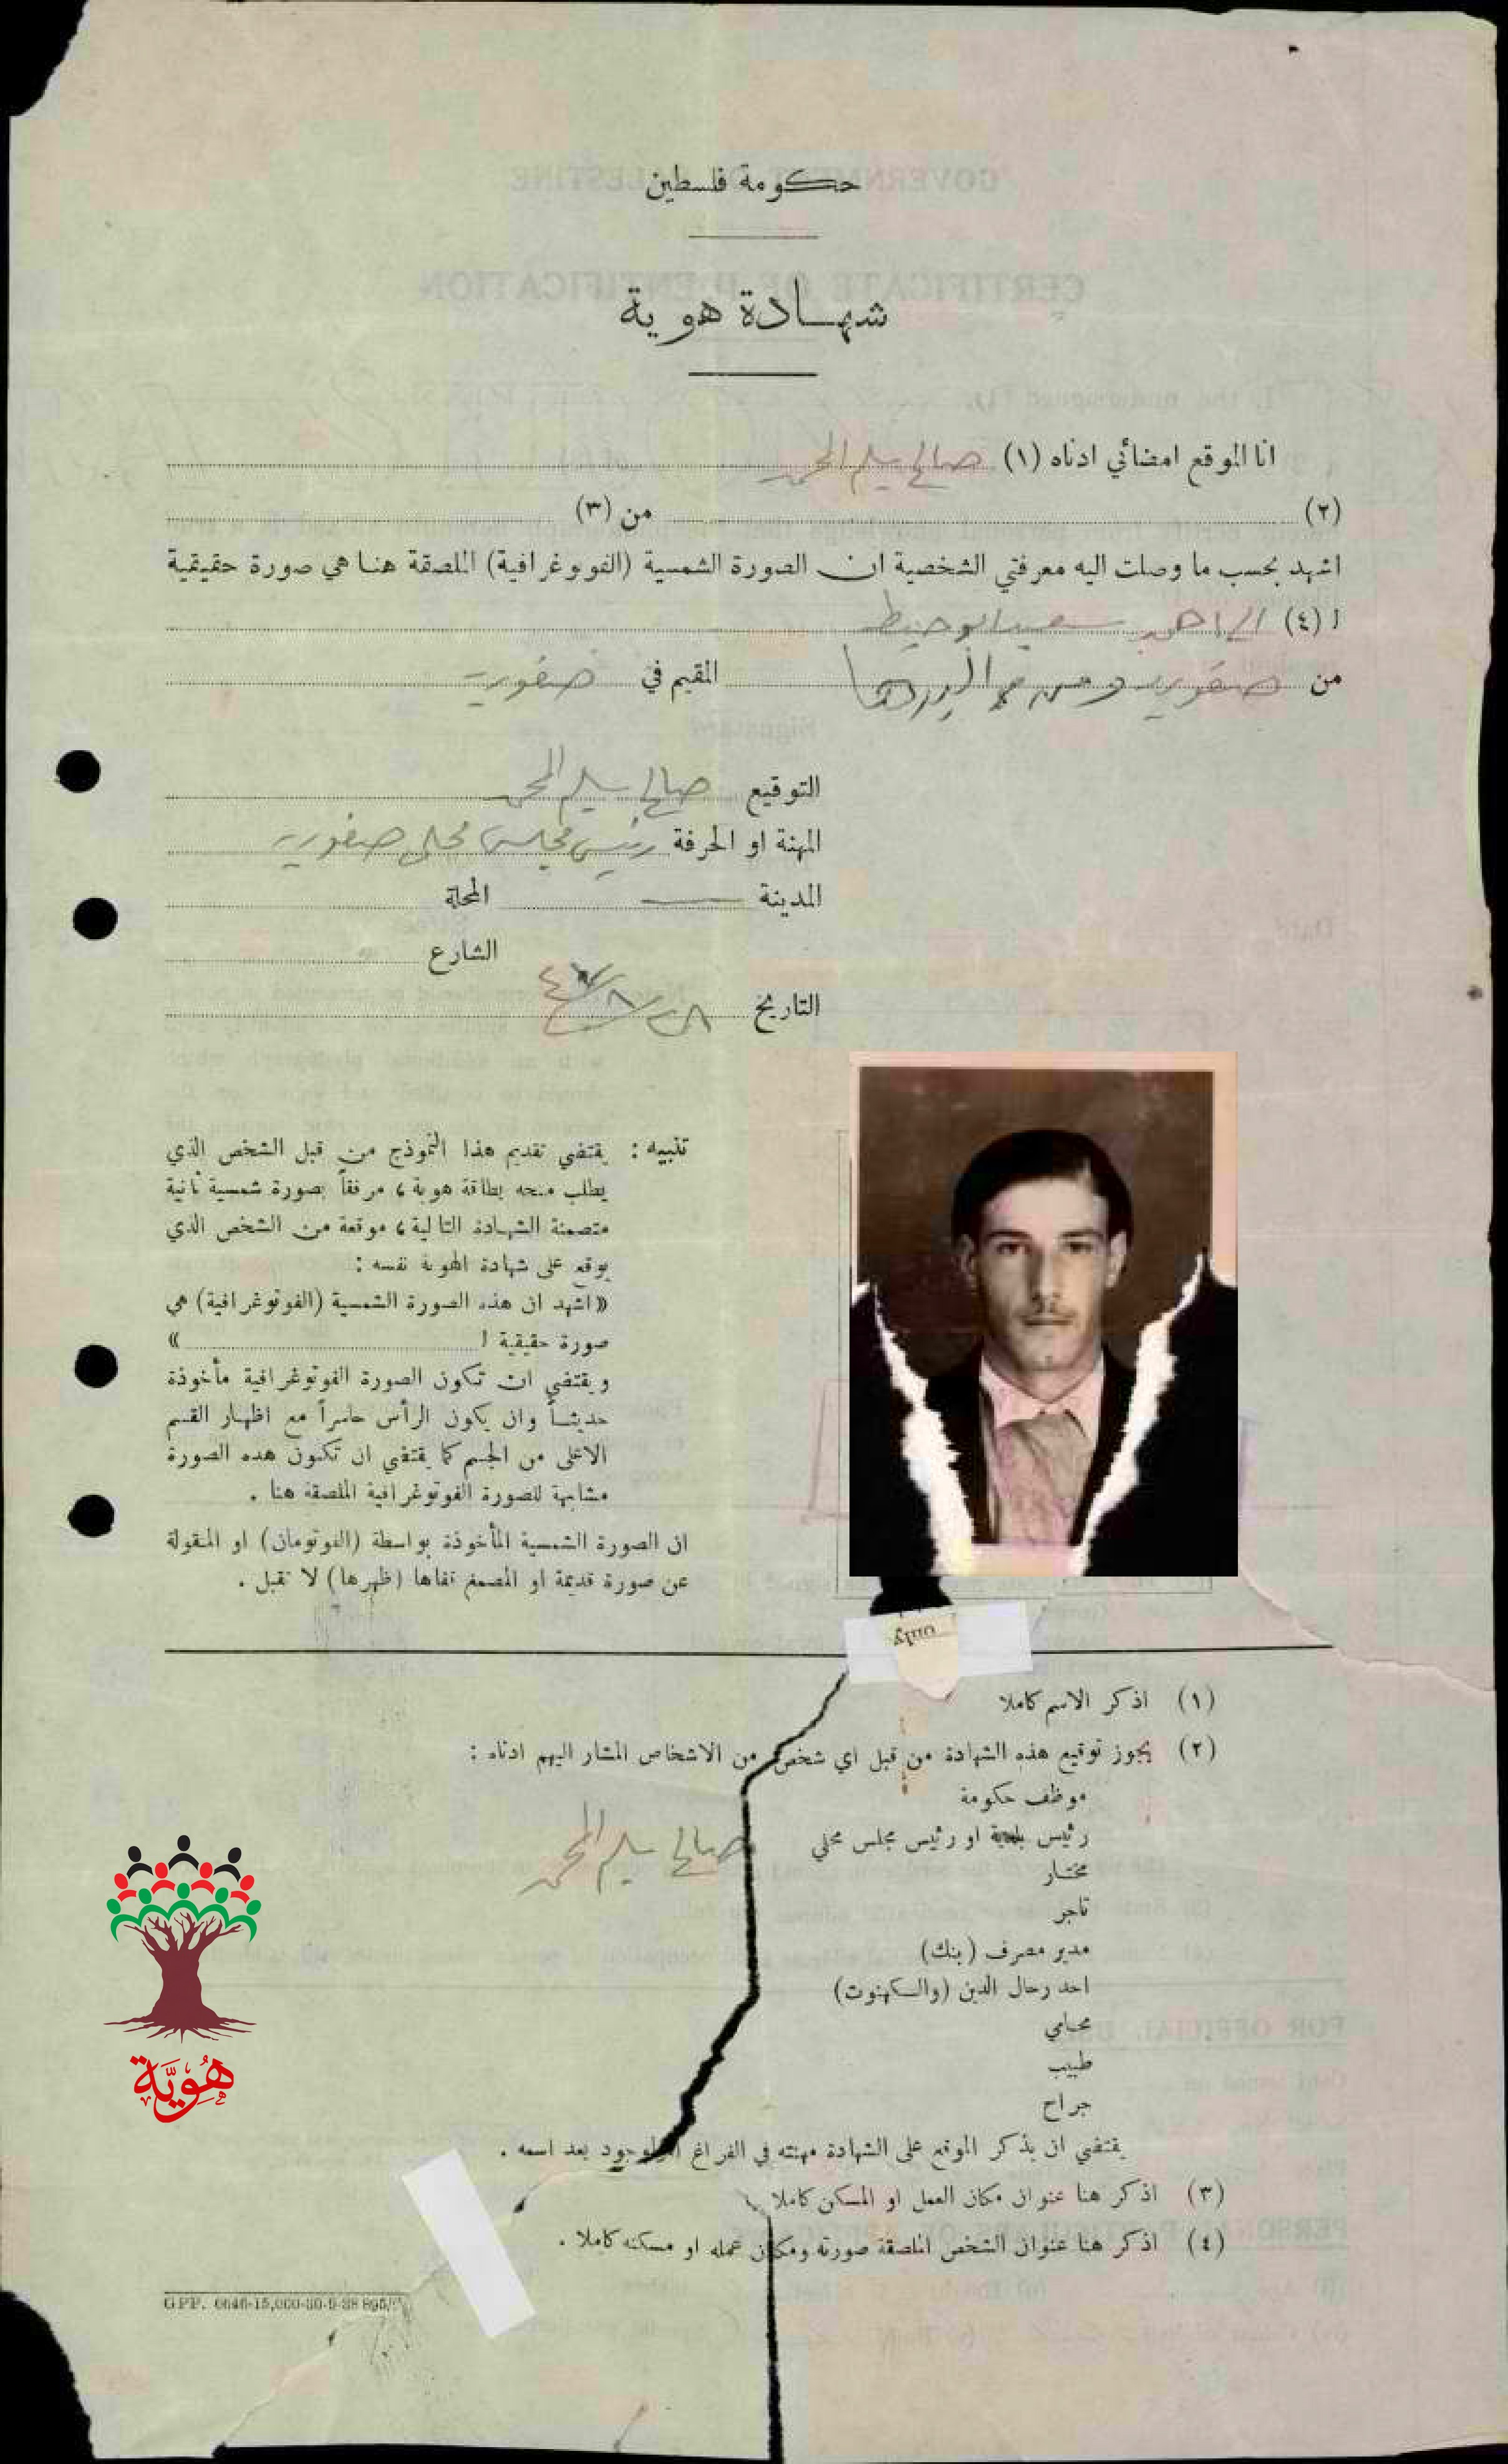 حكومة فلسطين
شهادة هوية
انا الموقع امضائي ادناه (١) صالح سليم المحمد
(٢) من (٣)
اشهد بحسب ما وصلت اليه معرفتي الشخصية ان الصورة الشمسية (الفوتوغرافية) الملصقة هنا هي صورة حقيقية
ل (٤)
من صفورية المقيم في صفورية
التوقيع صالح سليم المحمد
المهنة او الحرفة رئيس مجلس محلي صفورية
المدينة — المحلة
الشارع
التاريخ
تنبيه : يقتضي تقديم هذا النموذج من قبل الشخص الذي
يطلب منحه بطاقة هوية ، مرفقاً بصورة شمسية ثانية
متضمنة الشهادة التالية ، موقعة من الشخص الذي
يوقع على شهادة الهوية نفسه :
«اشهد ان هذه الصورة الشمسية (الفوتوغرافية) هي
صورة حقيقية ل »
ويقتضي ان تكون الصورة الفوتوغرافية مأخوذة
حديثاً وان يكون الرأس حاسراً مع اظهار القسم
الاعلى من الجسم كما يقتضي ان تكون هذه الصورة
مشابهة للصورة الفوتوغرافية الملصقة هنا .
ان الصورة الشمسية المأخوذة بواسطة (الفوتومان) او المنقولة
عن صورة قديمة او المصمغ قفاها (ظهرها) لا تقبل .
(١) اذكر الاسم كاملا
(٢) يجوز توقيع هذه الشهادة من قبل اي شخص من الاشخاص المشار اليهم ادناه :
موظف حكومة
رئيس بلدية او رئيس مجلس محلي
صالح سليم المحمد
مختار
تاجر
مدير مصرف (بنك)
احد رجال الدين (والكهنوت)
محامي
طبيب
جراح
يقتضي ان يذكر الموقع على الشهادة مهنته في الفراغ الموجود بعد اسمه .
(٣) اذكر هنا عنوان مكان العمل او المسكن كاملا
(٤) اذكر هنا عنوان الشخص الملصقة صورته ومكان عمله او مسكنه كاملا .
هُوِيَّة
GPP. 6646-15,000-30-9-38 895/